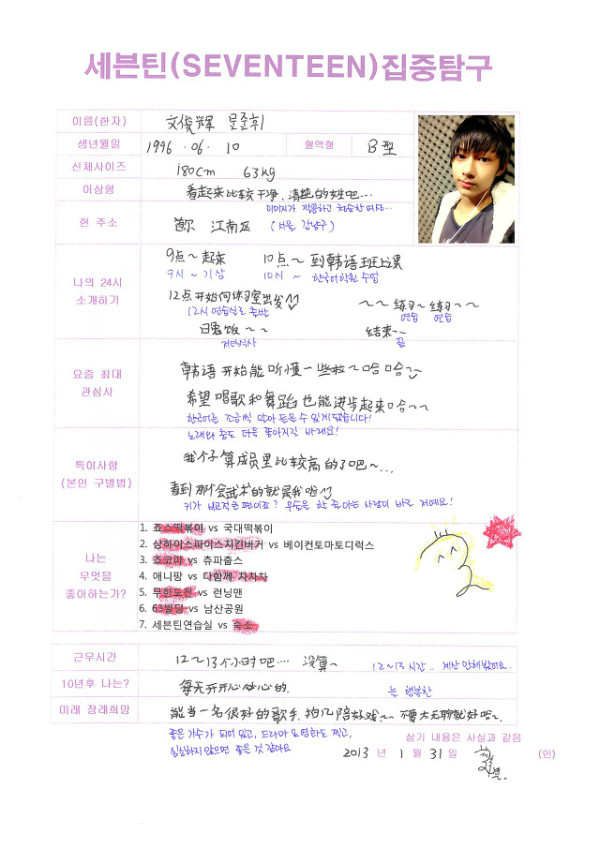 세븐틴(SEVENTEEN)집중탐구
이름(한자) 文俊辉 문준휘
생년월일 1996 . 06 . 10 혈액형 B型
신체사이즈 180cm 63kg
이상형 看起来比较干净, 清纯的女生吧...
이미지가 깨끗하고 청순한
현 주소 首尔 江南区 (서울 강남구)
나의 24시 소개하기
9点~起床 10点~到韩语班上课
9시~기상 10시~ 한국어학원 수업
12点开始向练习室出发 ~~练习~练习~~
12시 연습실로 출발 연습 연습
晚饭~~ 结束~~
저녁식사 끝
요즘 최대 관심사
韩语开始能听懂一些啦~哈哈~
希望唱歌和舞蹈也能进步起来哈~~
한국어를 조금씩 알아 들을 수 있게 됐습니다!
노래와 춤도 더욱 좋아지길 바래요!
특이사항 (본인 구별법)
我个子算成员里比较高的了吧~...
看到那个会武术的就是我啦
키가 비교적 큰 편이죠? 우슈를 할 줄 아는 사람이 바로 저예요!
나는 무엇을 좋아하는가?
1. 죠스떡볶이 vs 국대떡볶이
2. 상하이스파이스치킨버거 vs 베이컨토마토디럭스
3. 쵸코파 vs 츄파춥스
4. 애니팡 vs 다함께 차차차
5. 무한도전 vs 런닝맨
6. 63빌딩 vs 남산공원
7. 세븐틴연습실 vs 숙소
근무시간 12~13个小时吧... 没算~ 12~13시간.. 계산 안해봤어요.
10년후 나는? 每天开开心心的. 늘 행복한
미래 장래희망 能当一名很好的歌手, 拍几部好戏~~ 不要太无聊就好吧~
좋은 가수가 되어 있고, 드라마 & 영화도 찍고,
심심하지 않으면 좋을 것 같아요
상기 내용은 사실과 같음
2013 년 1 월 31 일 (인)